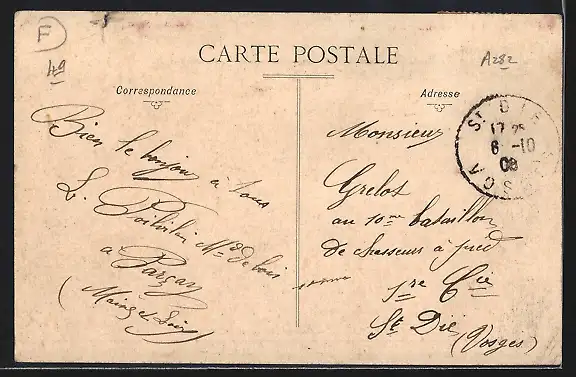 F
49
CARTE POSTALE
A282
Correspondance
Adresse
Bien le bonjour à tous
L. Poitevin Md de bois
à Parçay
(Maine et Loire)
Monsieur
Grelot
au 10me bataillon
de chasseurs à pied
1re Cie
St Dié
(Vosges)
ST DIÉ
6 -10
08
VOSGES